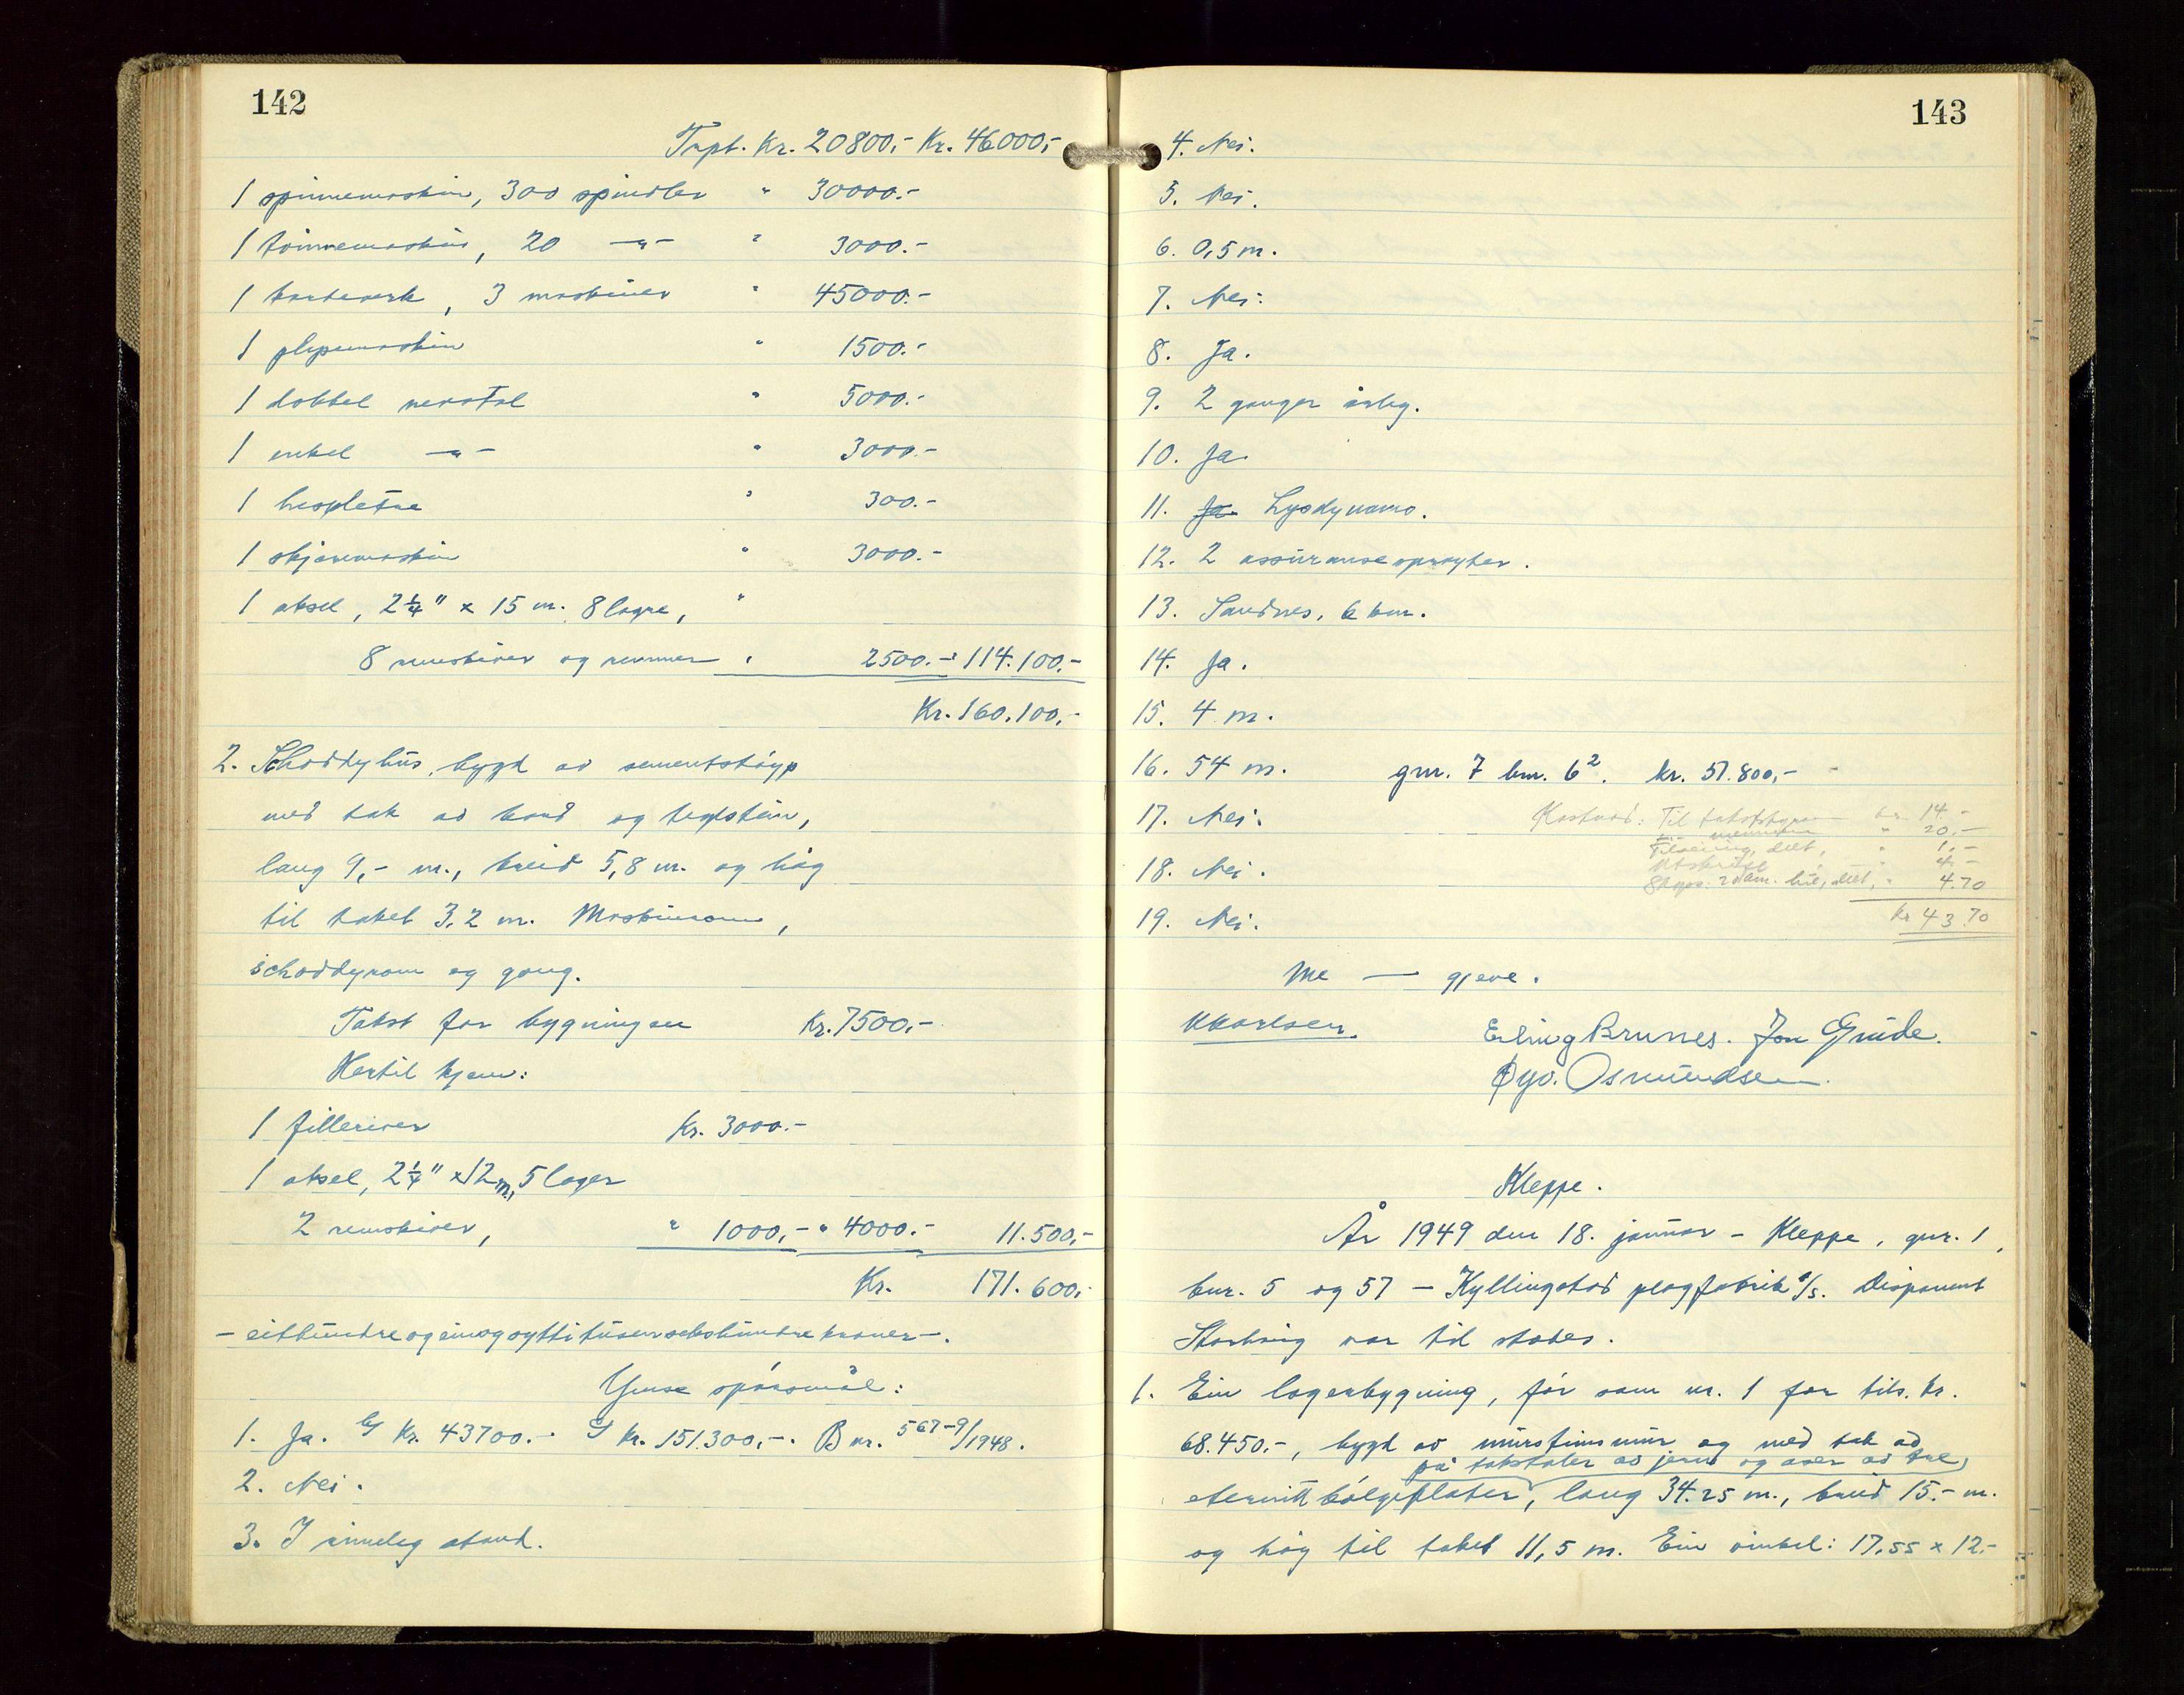 142
Trpt. Kr. 20800,- Kr. 46000,-
1 spinnemaskin, 300 spindler " 30000.-
1 tvinnemaskin, 20 -"- " 3000.-
1 kardeverk, 3 maskiner " 45000.-
1 " 1500.-
1 dobbel vevstol " 5000.-
1 enkel -"- " 3000.-
1 hespletre " 300.-
1 skjæremaskin " 3000.-
1 aksel, 2¼" x 15 m. 8 lagre, "
8 remskiver og remmer " 2500.- " 114.100.-
Kr. 160.100,-
2. Schoddyhus, bygd av sementstøyp
med tak av bord og teglstein,
lang 9,- m., breid 5,8 m. og høg
til taket 3,2 m. Maskinrom,
schoddyrom og gang.
Takst for bygningen Kr. 7500,-
Hertil kjem:
1 fillerivar Kr. 3000.-
1 aksel, 2¼" x 12 m, 5 lager
2 remskiver, " 1000,- " 4000.- 11.500,-
Kr. 171.600,-
- eitthundreogeinogsyttitusensekshundre kroner -.
Ymse spørsmål:
1. Ja. Kr. 43700.- Kr. 151.300,-. B nr. 567-9/1948.
2. Nei.
3. I rimeleg stand.
143
4. Nei.
5. Nei.
6. 0,5 m.
7. Nei.
8. Ja.
9. 2 gonger årleg.
10. Ja.
11. Ja. Lysdynamo.
12. 2 assuransesprøyter.
13. Sandnes, 6 km.
14. Ja.
15. 4 m.
16. 54 m. gnr. 7 bnr. 6². kr. 51.800,-
Kostnad: Til takststyrar kr. 14.-
17. Nei.
" mennene " 20.-
Tilseiing, delt, " 1,-
Utskrift " 4,-
18. Nei.
Skyss: bil, delt, " 4.70
19. Nei.
Kr 43.70
Me — gjeve.
KKarlsen. Erling Brunes. Jon Grude.
Øyv. Osmundsen.
Kleppe.
År 1949 den 18. januar - Kleppe, gnr. 1,
bnr. 5 og 57 - Kyllingstad plogfabrik a/s. Disponent
var til stades.
1. Ein lagerbygning, før som nr. 1 for tils. kr.
68.450.-, bygd av mursteinsmur og med tak av
på takstoler av jern og åser av tre,
eternitt bølgeplater, lang 34.25 m., breid 15.- m.
og høg til taket 11,5 m. Ein vinkel: 17,55 x 12.-